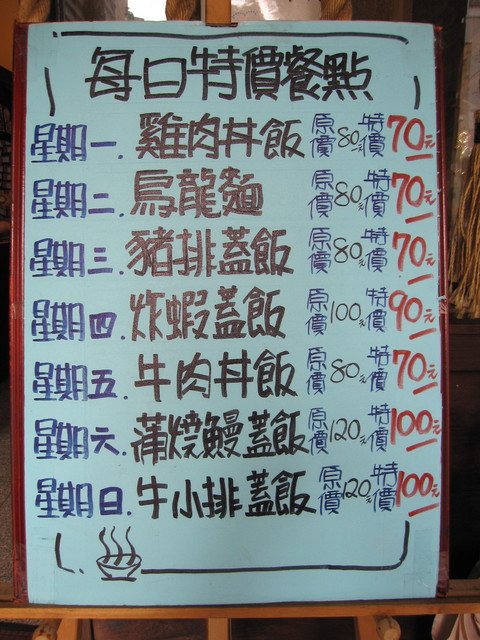 每日特價餐點
星期一.雞肉丼飯 原價80元 特價70元
星期二.烏龍麵 原價80元 特價70元
星期三.豬排蓋飯 原價80元 特價70元
星期四.炸蝦蓋飯 原價100元 特價90元
星期五.牛肉丼飯 原價80元 特價70元
星期六.蒲燒鰻蓋飯 原價120元 特價100元
星期日.牛小排蓋飯 原價120元 特價100元